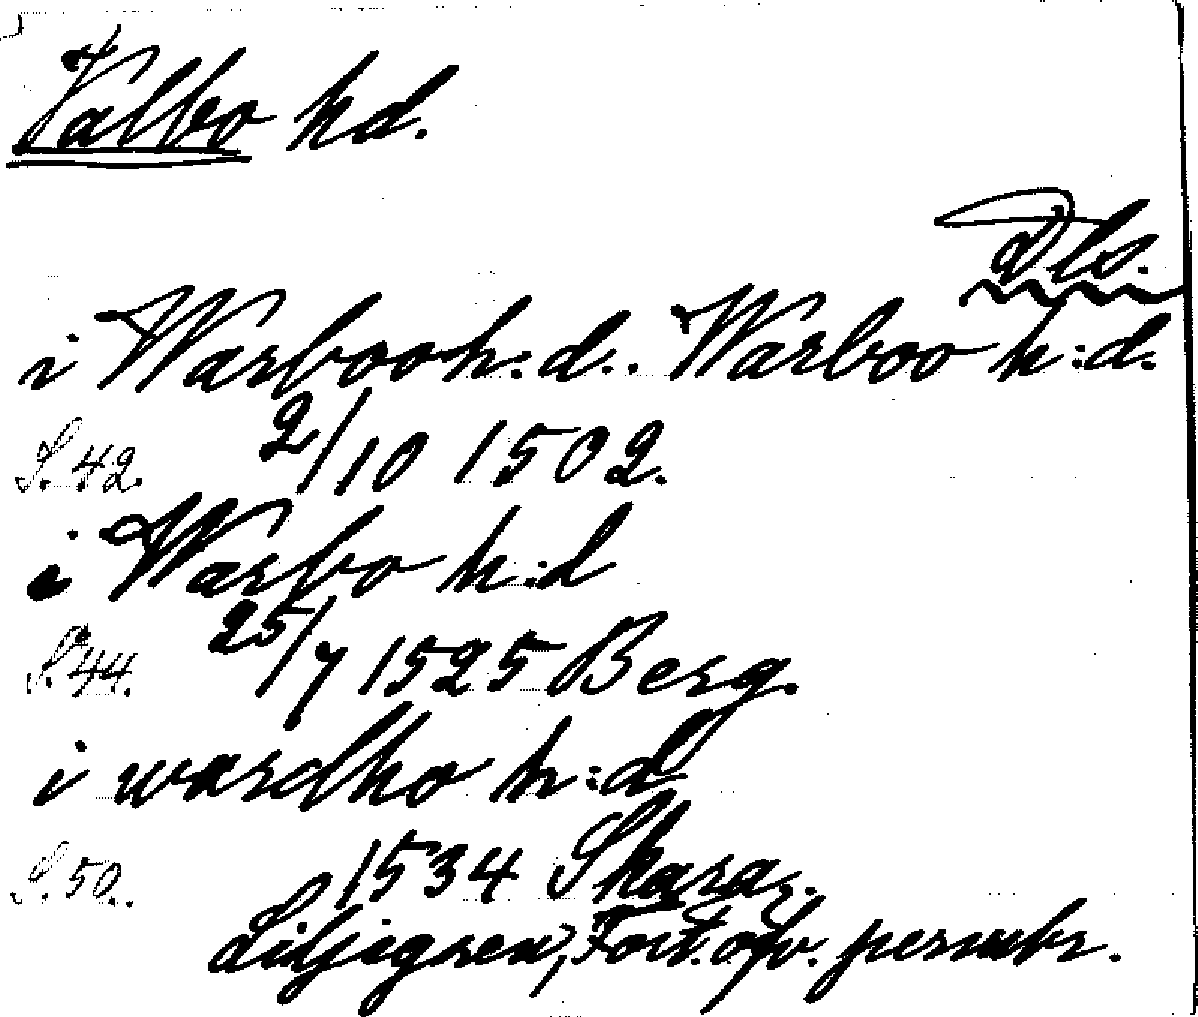 Valbo hd.
Dls.
i Warboo h:d.. Warboo h:d.
S. 42. 2/10 1502.
i Warbo h:d
S. 44. 25/7 1525 Berg.
i wardho h:d
S. 50. 1534 Skara.
Liljegren, Fört. öfv. permebr.